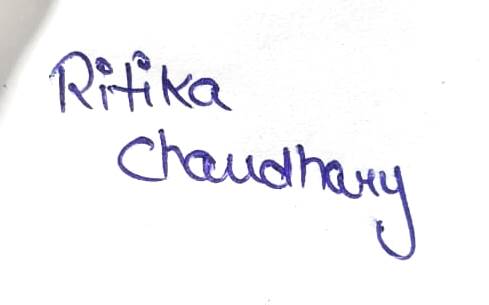 Ritika
Chaudhary